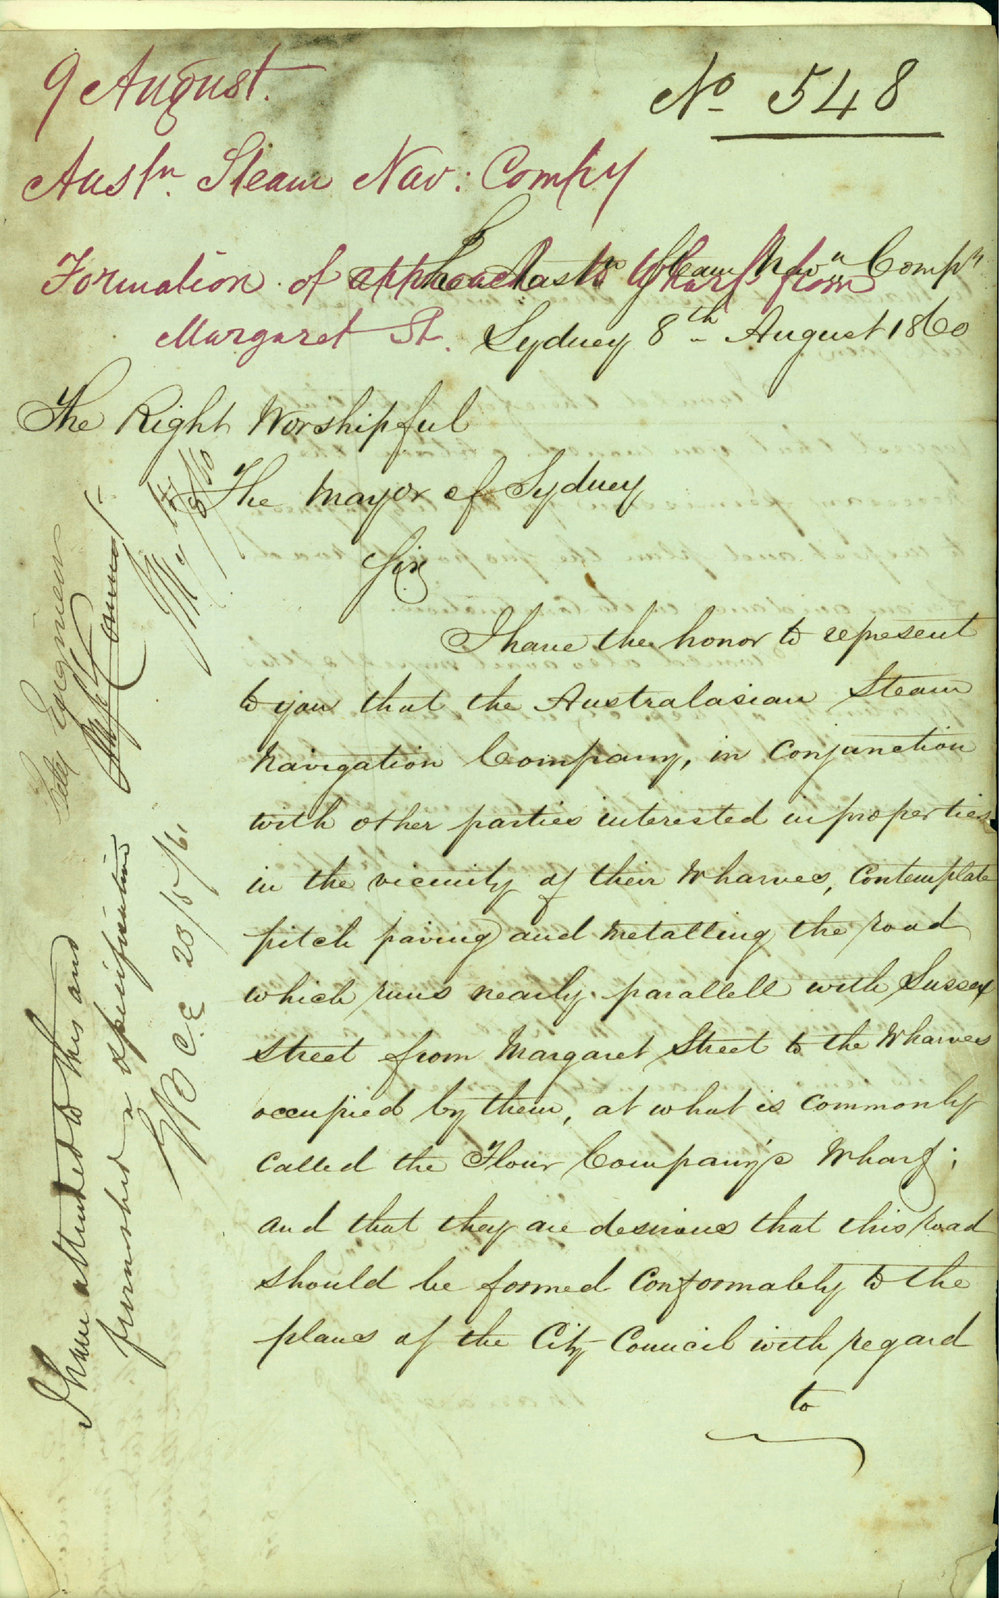 9 August.
No 548
Austn. Steam Nav: Compy
Formation of approach to Wharf from
Margaret St.
Austn Steam Navn Compy
Sydney 8th August 1860
The Right Worshipful
The Mayor of Sydney
Sir
I have the honor to represent
to you that the Australasian Steam
Navigation Company, in conjunction
with other parties interested in properties
in the vicinity of their Wharves, Contemplate
pitch paving and Metalling the road
which runs nearly parallell with Sussex
Street from Margaret Street to the Wharves
occupied by them, at what is commonly
Called the Flour Company's Wharf;
and that they are desirous that this road
should be formed Conformably to the
plans of the City Council with regard
to
City Engineer
I have attended to this and
furnished a specification
C.E